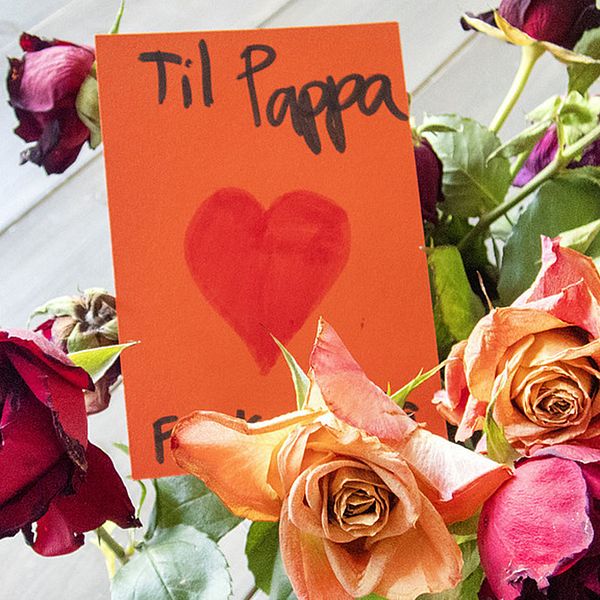 Til Pappa